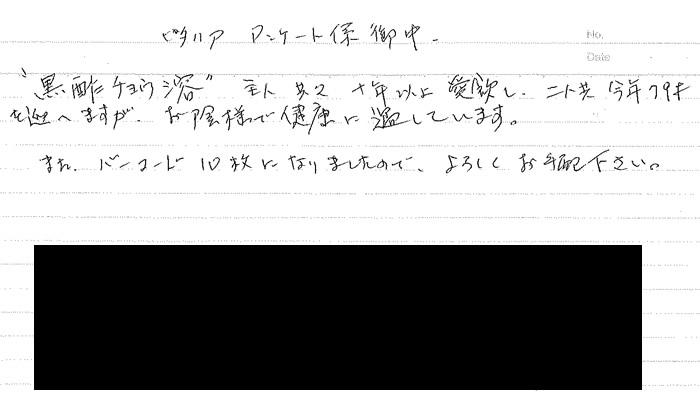 ピタリア アンケート係 御中.
No.
Date
"黒酢チョウ溶" 主人 共々 十年以上 愛飲し、二人共 今年79才
を迎へますが、お陰様で健康に過しています。
また、バーコード10枚になりましたので、よろしくお手配下さい。